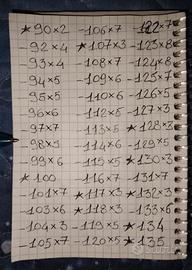 ★90×2
-92×4
-93×4
-94×5
-95×5
-96×6
-97×7
-98×9
-99×6
★100
-101×7
-103×6
-104×3
-105×7
-106×7
★107×3
-108×7
-109×6
-110×6
-112×5
-113×5
-114×6
-115×5
-116×7
★117×3
★118×3
-119×5
-120×5
122×7
-123×8
-124×8
-125×7
-126×5
-127×3
★128×3
-129×5
★130×3
-131×7
★132×3
-133×6
★134
★135